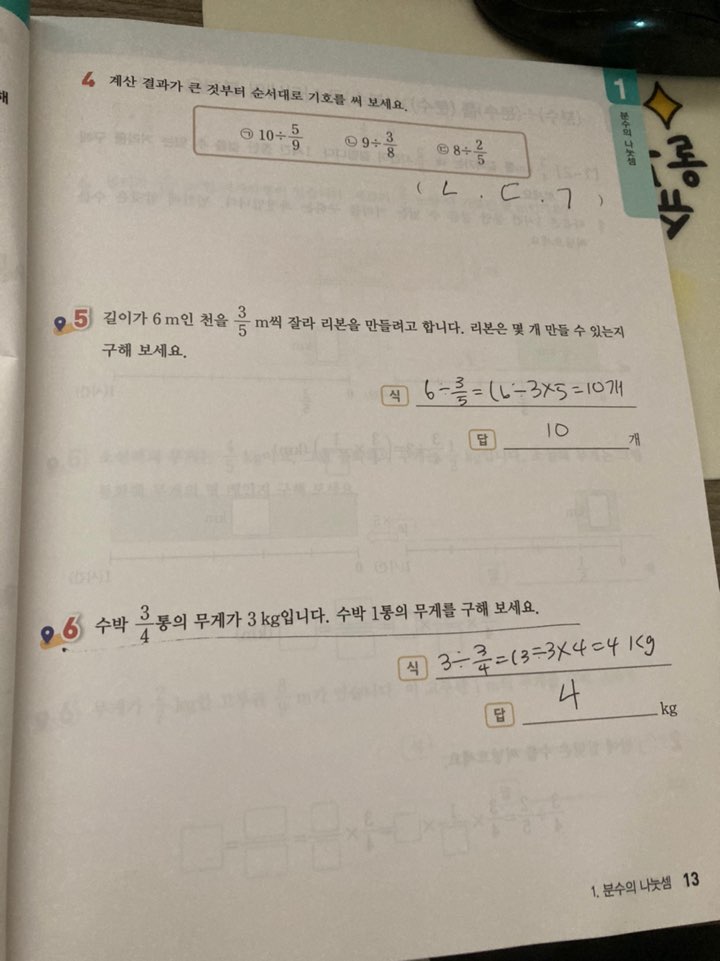 4 계산 결과가 큰 것부터 순서대로 기호를 써 보세요.
㉠ 10÷5/9 ㉡ 9÷3/8 ㉢ 8÷2/5
( ㄴ . ㄷ . ㄱ )
1
분수의 나눗셈
5 길이가 6 m인 천을 3/5 m씩 잘라 리본을 만들려고 합니다. 리본은 몇 개 만들 수 있는지
구해 보세요.
식 6÷3/5=(6÷3×5=10개
답 10 개
6 수박 3/4통의 무게가 3 kg입니다. 수박 1통의 무게를 구해 보세요.
식 3÷3/4=(3÷3×4=4 kg
답 4 kg
1. 분수의 나눗셈 13